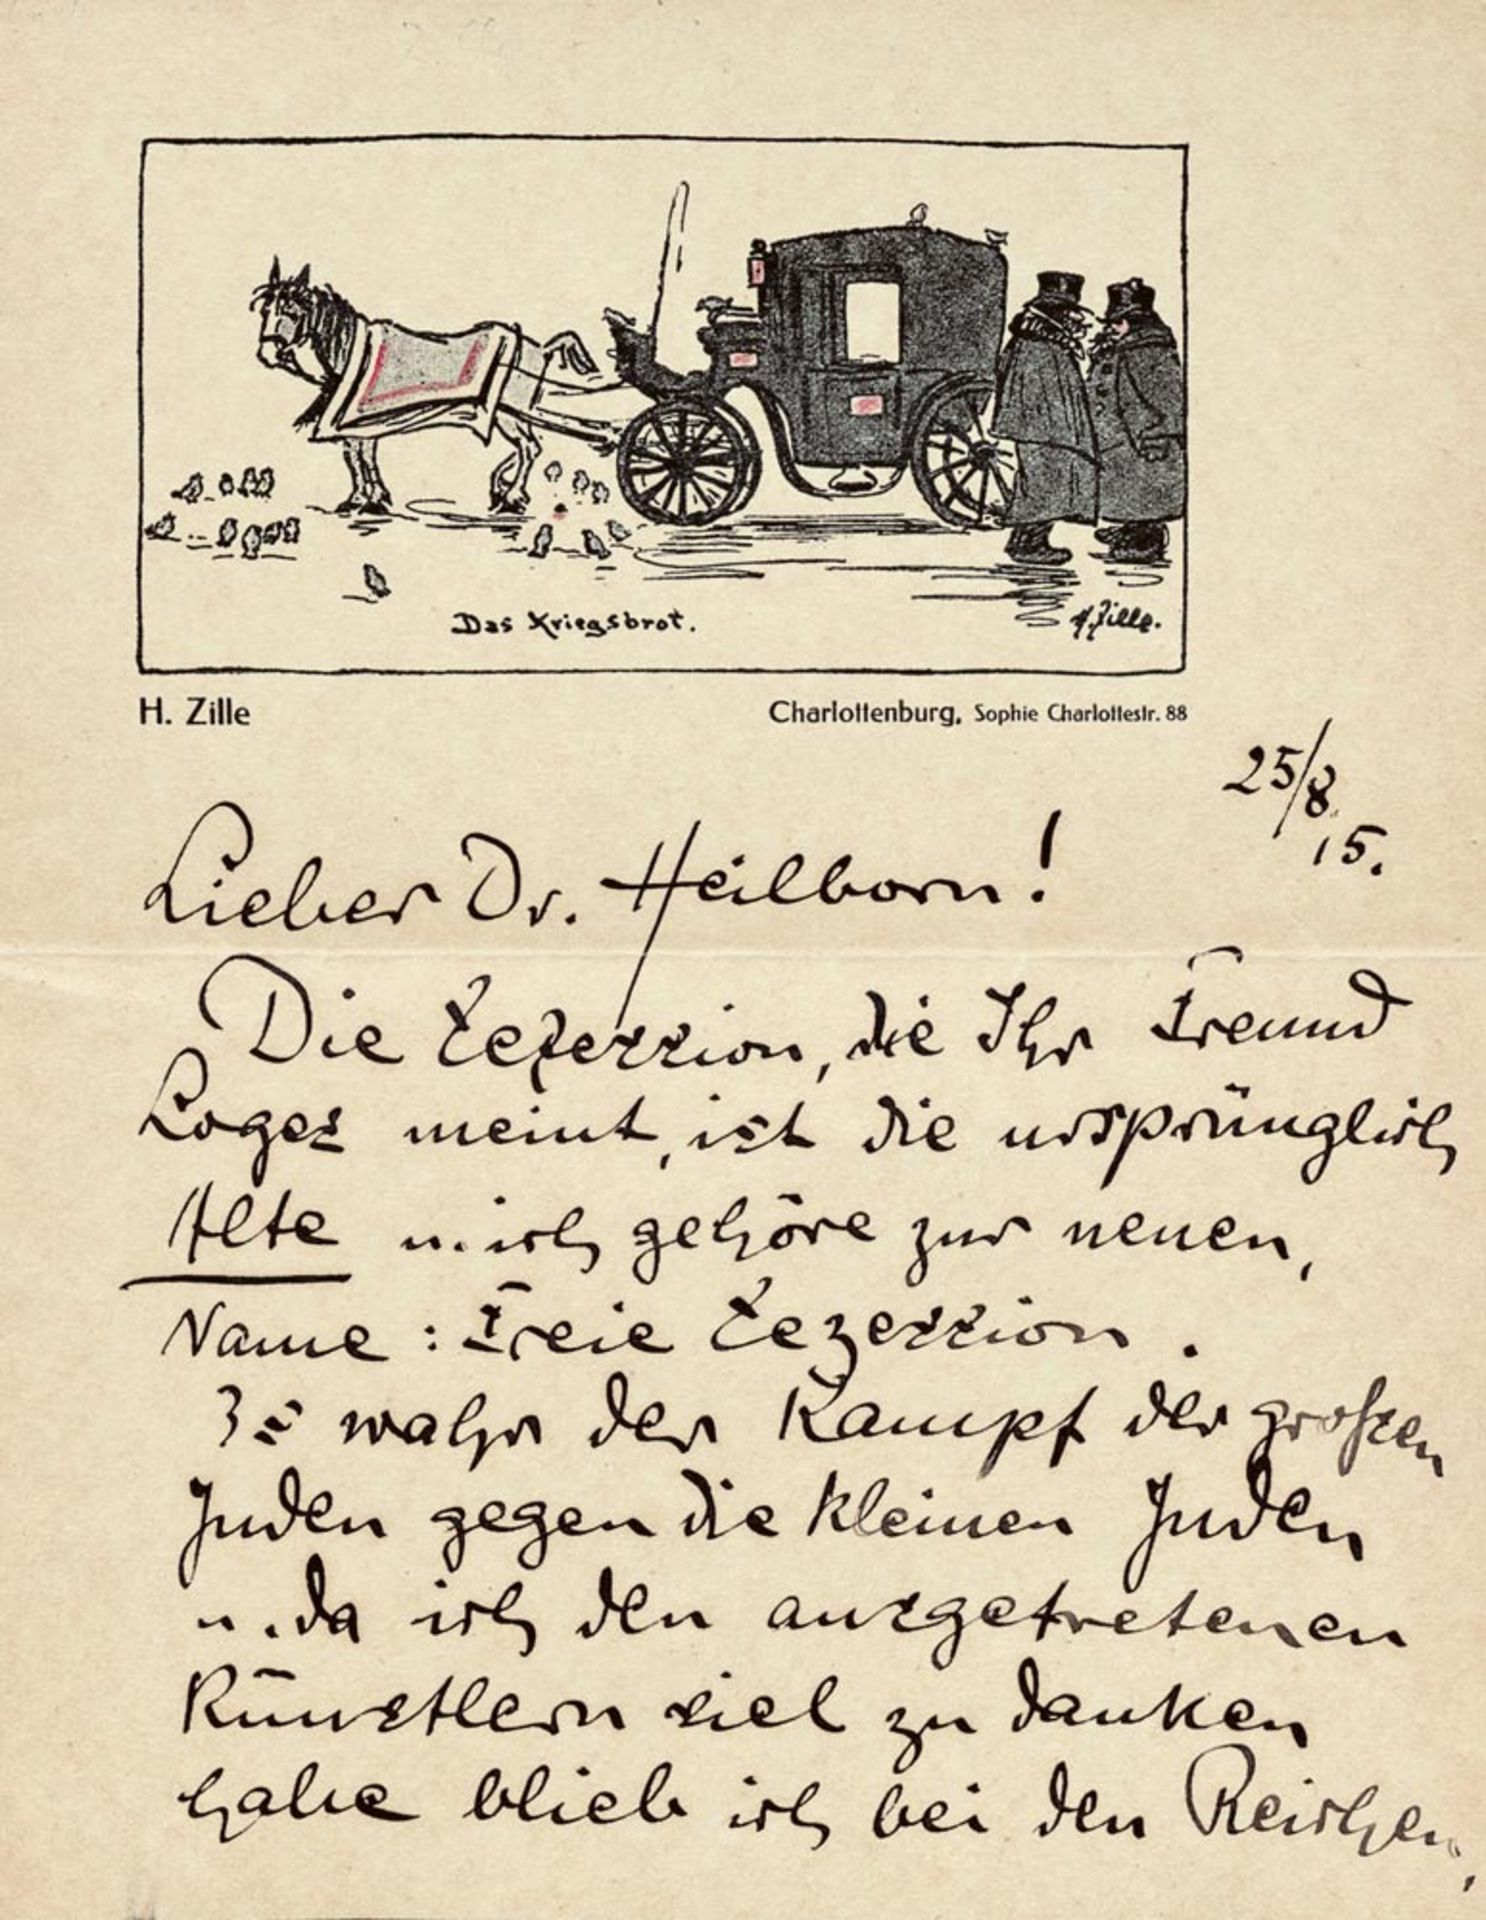 Das Kriegsbrot.
H. Zille.
H. Zille
Charlottenburg, Sophie Charlottestr. 88
25/8
15.
Lieber Dr. Heilborn!
Die Sezession, die Ihr Freund
Loges meint, ist die ursprünglich
Alte u. ich gehöre zur neuen,
Name: Freie Sezession.
Es wahr der Kampf der großen
Juden gegen die kleinen Juden
u. da ich den ausgetretenen
Künstlern viel zu danken
habe blieb ich bei den Reichen,